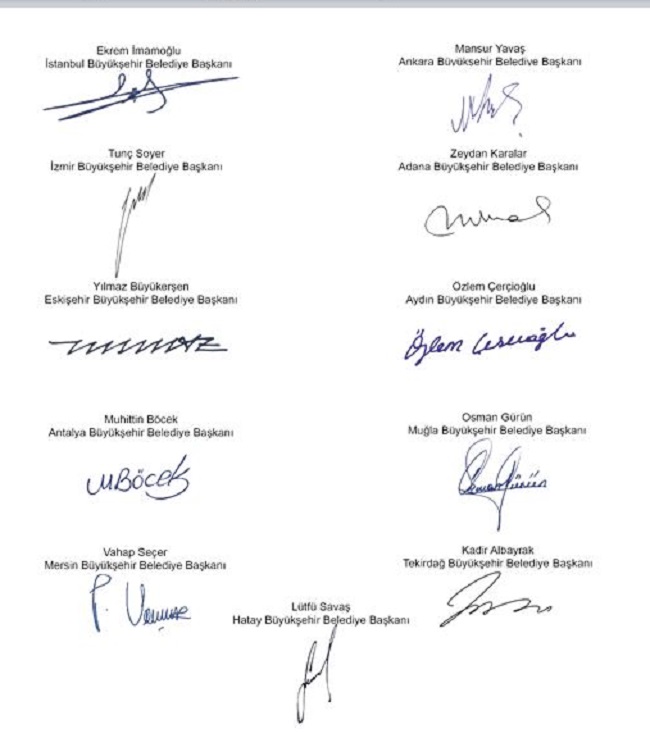 Ekrem İmamoğlu
İstanbul Büyükşehir Belediye Başkanı
Mansur Yavaş
Ankara Büyükşehir Belediye Başkanı
Tunç Soyer
İzmir Büyükşehir Belediye Başkanı
Zeydan Karalar
Adana Büyükşehir Belediye Başkanı
Yılmaz Büyükerşen
Eskişehir Büyükşehir Belediye Başkanı
Özlem Çerçioğlu
Aydın Büyükşehir Belediye Başkanı
Özlem Çerçioğlu
Muhittin Böcek
Antalya Büyükşehir Belediye Başkanı
MBöcek
Osman Gürün
Muğla Büyükşehir Belediye Başkanı
Osman Gürün
Vahap Seçer
Mersin Büyükşehir Belediye Başkanı
Kadir Albayrak
Tekirdağ Büyükşehir Belediye Başkanı
Lütfü Savaş
Hatay Büyükşehir Belediye Başkanı